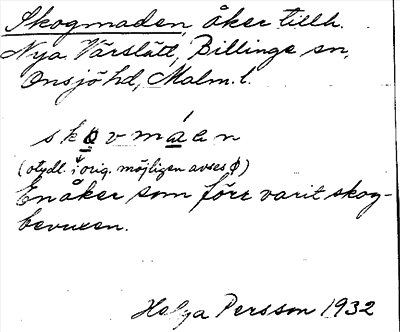 Skogmaden, åker tillh.
Nya Vårslätt, Billinge sn,
Onsjö hd, Malm. l.
skøvmáan
(otydl. i orig. möjligen avses ø)
En åker som förr varit skog-
bevuxen.
Helga Persson 1932